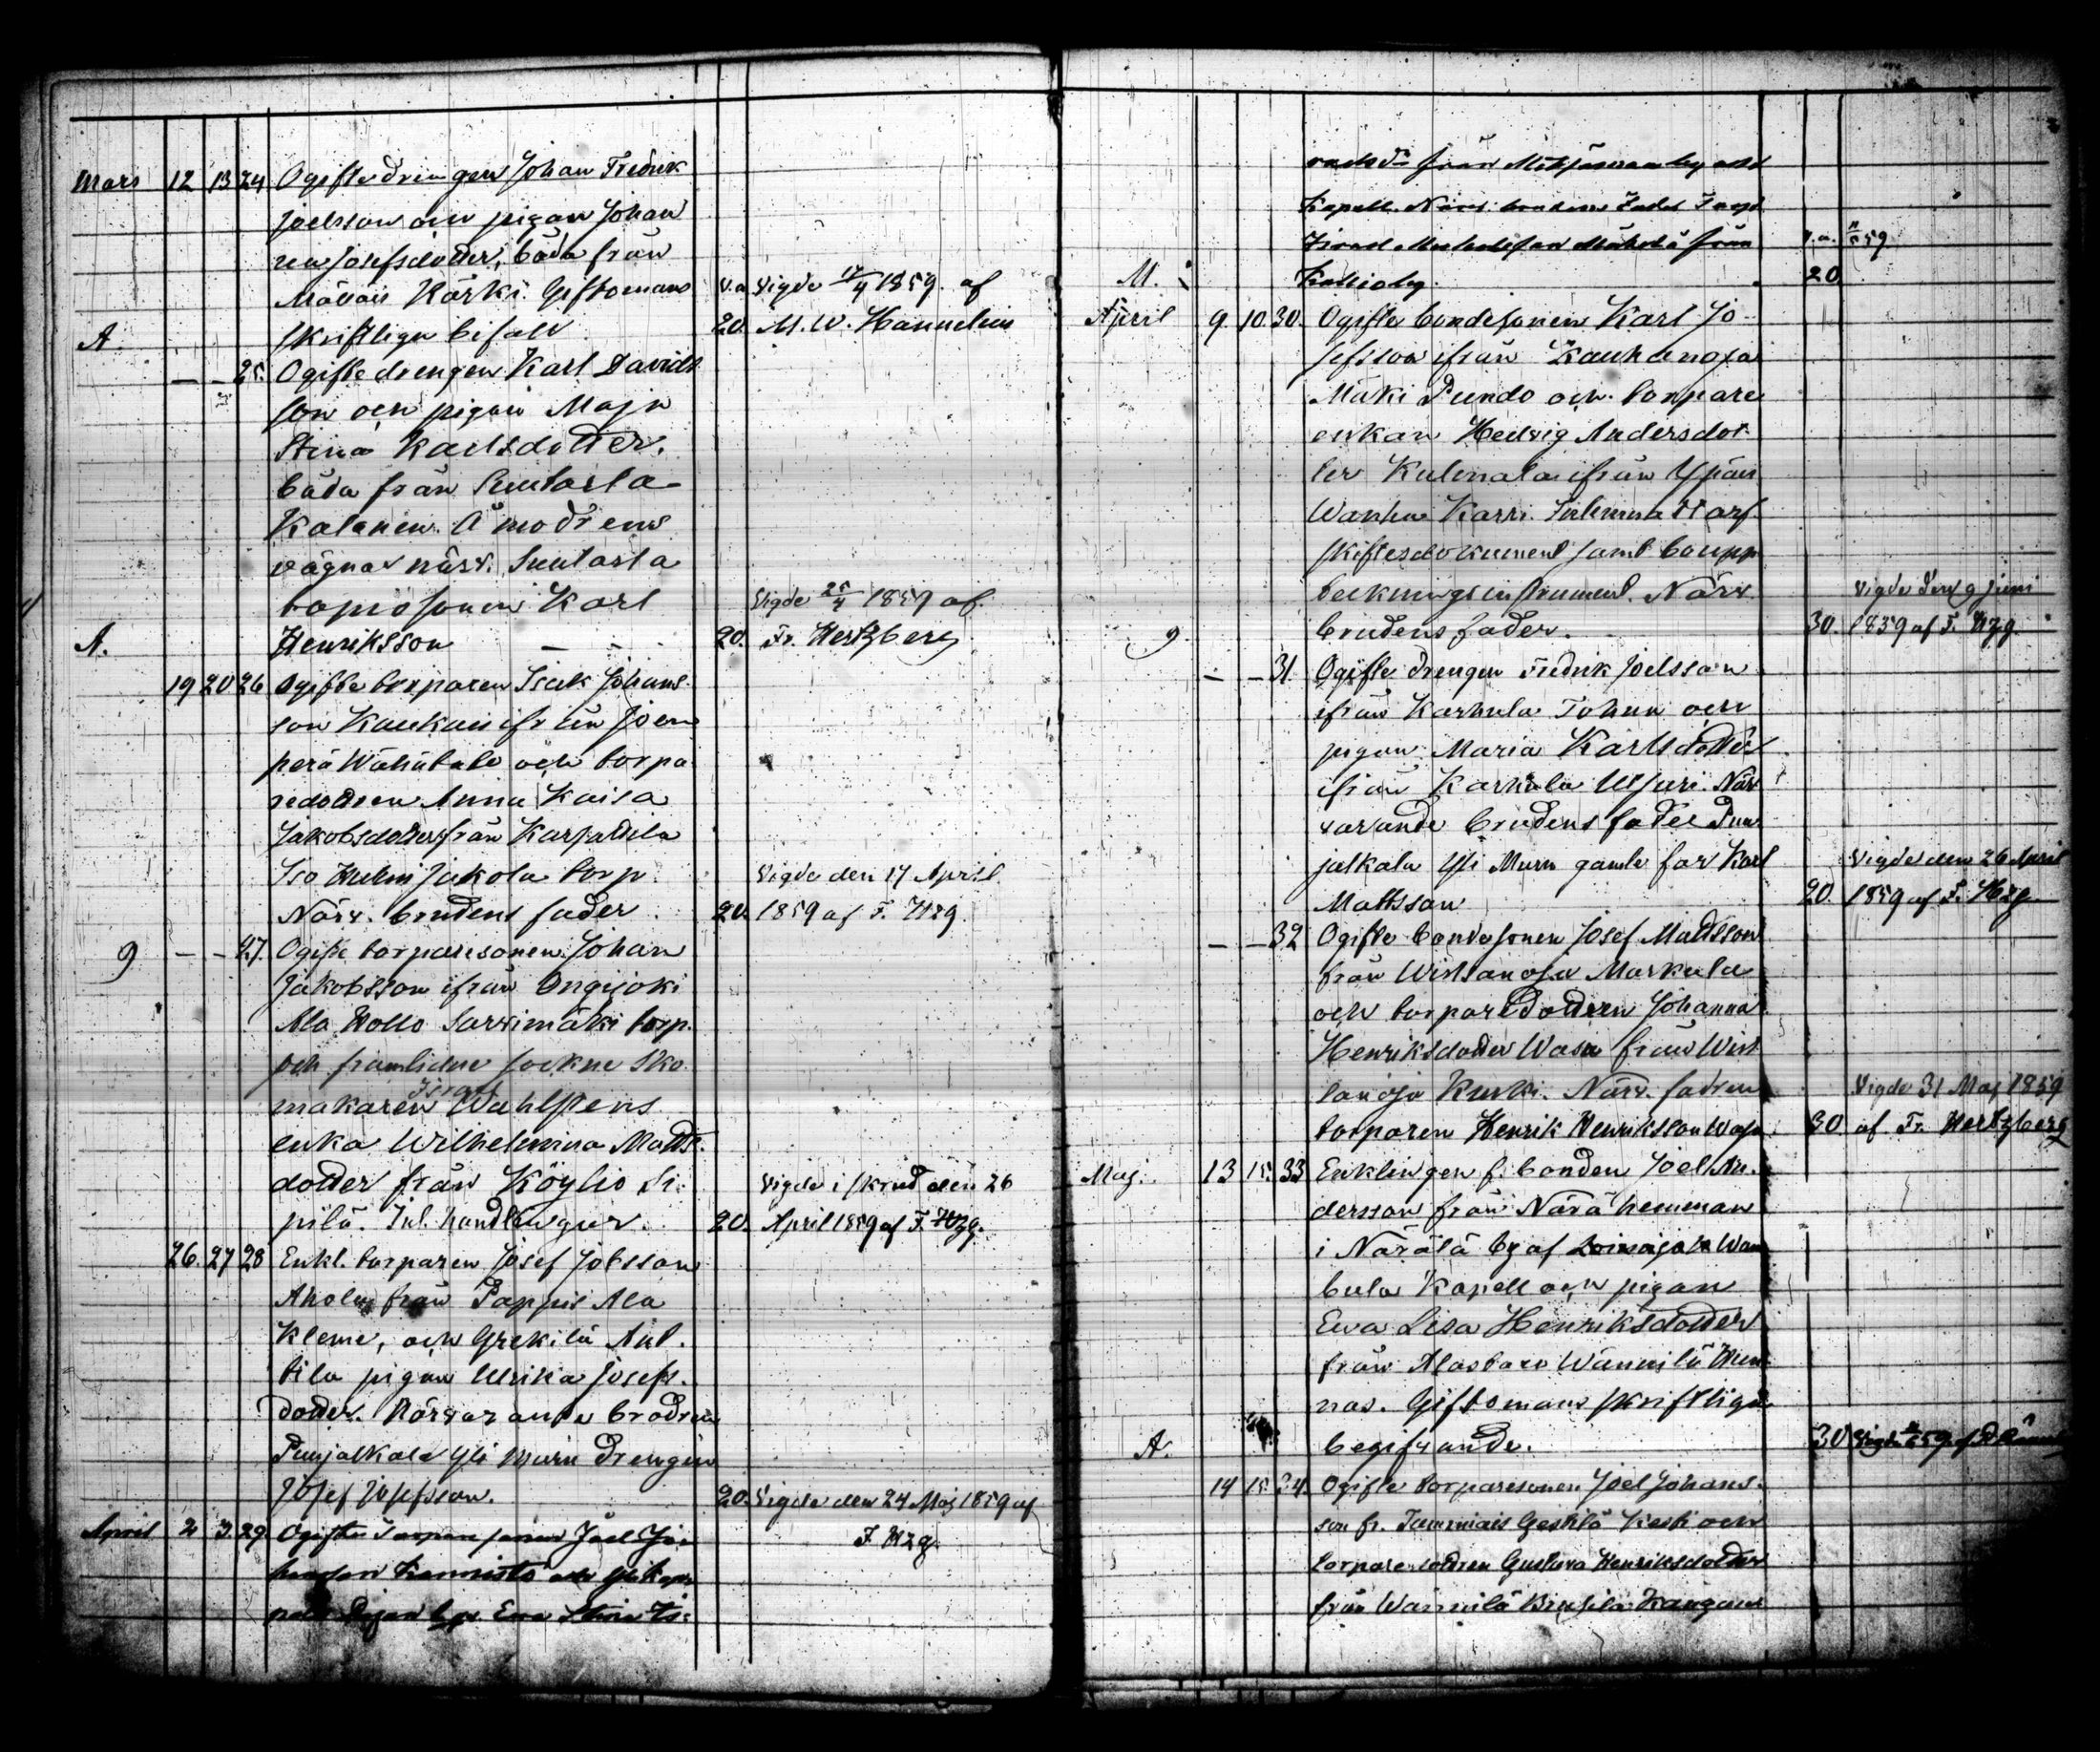 Mars 12 13 24 Ogifte drengen Johan Fredrik
Joelsson och pigan Johan
na Josefsdotter, båda från
Mällais Kärki. Giftomans V.a Vigde 17/4 1859. af
A. skriftliga bifall 20. M. W. Hannelius
— — 25. Ogifte drengen Karl Davids
son och pigan Maja
Stina Karlsdotter,
båda från Suutarla
Kalanen. Å modrens
vägnar närv. Suutarla
sonen Karl Vigde 25/4 1859 af
A. Henriksson — — 20. Fr. Hertzberg
19 20 26 Ogifte torparen Isak Johans
son Kaukais ifrån Joen
perä Wähätalo och torpa
redottren Anna Kaisa
Jakobsdotter från
Iso torp. Vigde den 17 April
Närv. brudens fader. 20. 1859 af F. Hzg.
9 — — 27. Ogifte torparesonen Johan
Jakobsson ifrån Ongijoki
Ala Hollo Sarvimäki torp.
och framlidne sockne sko
Israel
makaren Wahlstens
enka Wilhelmina Matts
dotter från Köyliö Si
pilä. Inl. handlingar. Vigde i Skrud den 26
20. April 1859 af F. Hzg.
26. 27 28 Enkl. torparen Josef Jobsson
Ahola från Pappis Ala
Kleme, och Grekilä Ant
tila pigan Ulrika Josefs
dotter. Närvarande brodren
Punjalkala Yli Murn drengen
Josef Josefsson. 20. Vigde den 24 Maj 1859 af
F. Hzg.
April 2 3 29. Ogifte sonen Joel Jo
hansson Kannisto och
Eva Stina Is
från by och
Kapell. Närv.
Israel från V.a. 59
M. Kallioby. 20
April 9. 10 30. Ogifte bondesonen Karl Jo
sefsson ifrån Kauhanoja
Mäki Pundo och torpare
enkan Hedvig Andersdot
ter Kulmala ifrån Ypäis
Wanha Karri. Inlemnat arf
skiftesdokument samt boupp
teckningsinstrument. Närv. Vigde den 9 Juni
9 brudens fader. 30. 1859 af F. Hzg.
— — 31. Ogifte drengen Fredrik Joelsson
ifrån Karhula Tohun och
pigan Maria Karlsdotter
ifrån Karhula Uljuri. När
varande brudens fader Pun
jalkala Yli Murn gamle far Karl Vigde den 26 April
Mattsson 20. 1859 af F. Hzg.
— — 32 Ogifte bondesonen Josef Mattsson
från Wirtsanoja Markula
och torparedottren Johanna
Henriksdotter Wasa från Wirt
sanoja Kurki. Närv. fadren Vigde 31 Maj 1859
torparen Henrik Henriksson Wasa 30 af Fr. Hertzberg
Maj. 13 15. 33 Enklingen f. bonden Joel An
dersson från Närä hemman
i Närälä by af Loimijoki Wam
bula Kapell och pigan
Eva Lisa Henriksdotter
från Alastaro Wännilä Hen
nas. Giftomans skriftliga
A. begifvande. 30 Vigde 59 af
14 15 34. Ogifte torparesonen Joel Johans
son fr. Tammiais Geskilä Keski och
torparedottren Gustava Henriksdotter
från Wännilä